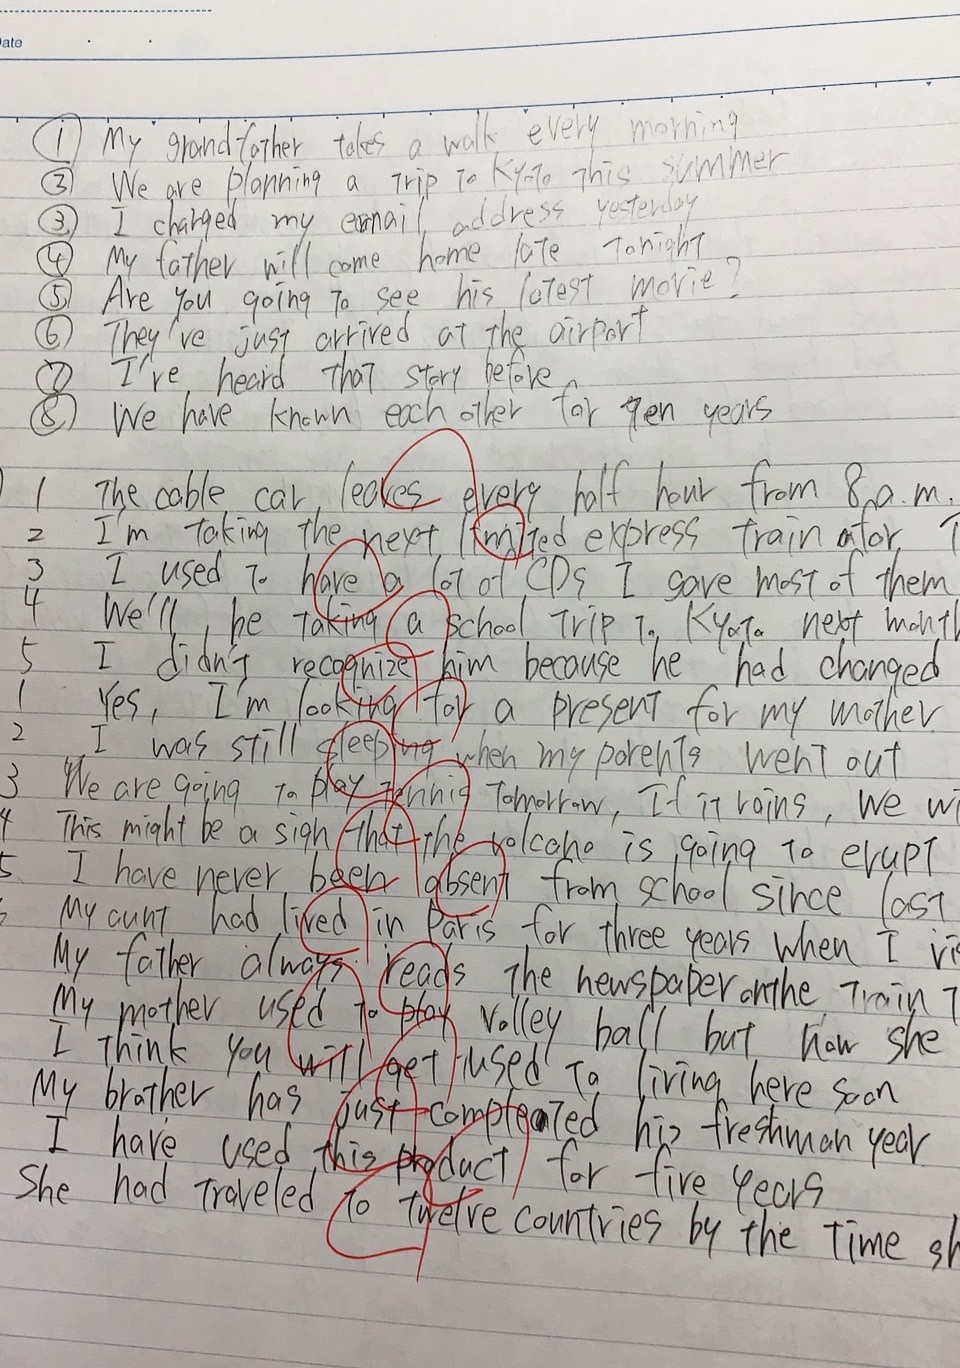 Date
① My grandfather takes a walk every morning
② We are planning a trip to Kyoto this summer
③ I changed my email address yesterday
④ My father will come home late tonight
⑤ Are you going to see his latest movie?
⑥ They've just arrived at the airport
⑦ I've heard that story before
⑧ We have known each other for ten years
1 The cable car leaves every half hour from 8 a.m.
2 I'm taking the next limited express train
3 I used to have a lot of CDs I gave most of them
4 We'll be taking a school trip to Kyoto next month
5 I didn't recognize him because he had changed
1 Yes, I'm looking for a present for my mother
2 I was still sleeping when my parents went out
3 We are going to play tennis tomorrow, If it rains, we
4 This might be a sign that the volcano is going to erupt
5 I have never been absent from school since last
My aunt had lived in Paris for three years when I
My father always reads the newspaper on the train
My mother used to play volley ball but now she
I think you will get used to living here soon
My brother has just compleated his freshman year
I have used this product for five years
She had traveled to twelve countries by the time